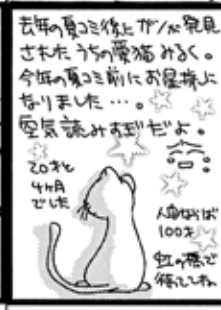 去年の夏コミ後にガンが発見
された うちの愛猫 みるく。
今年の夏コミ前にお星様に
なりました…。
空気読みすぎだよ。
20才と
4ヶ月
でした
人間ならば
100才
虹の橋で
待っててね